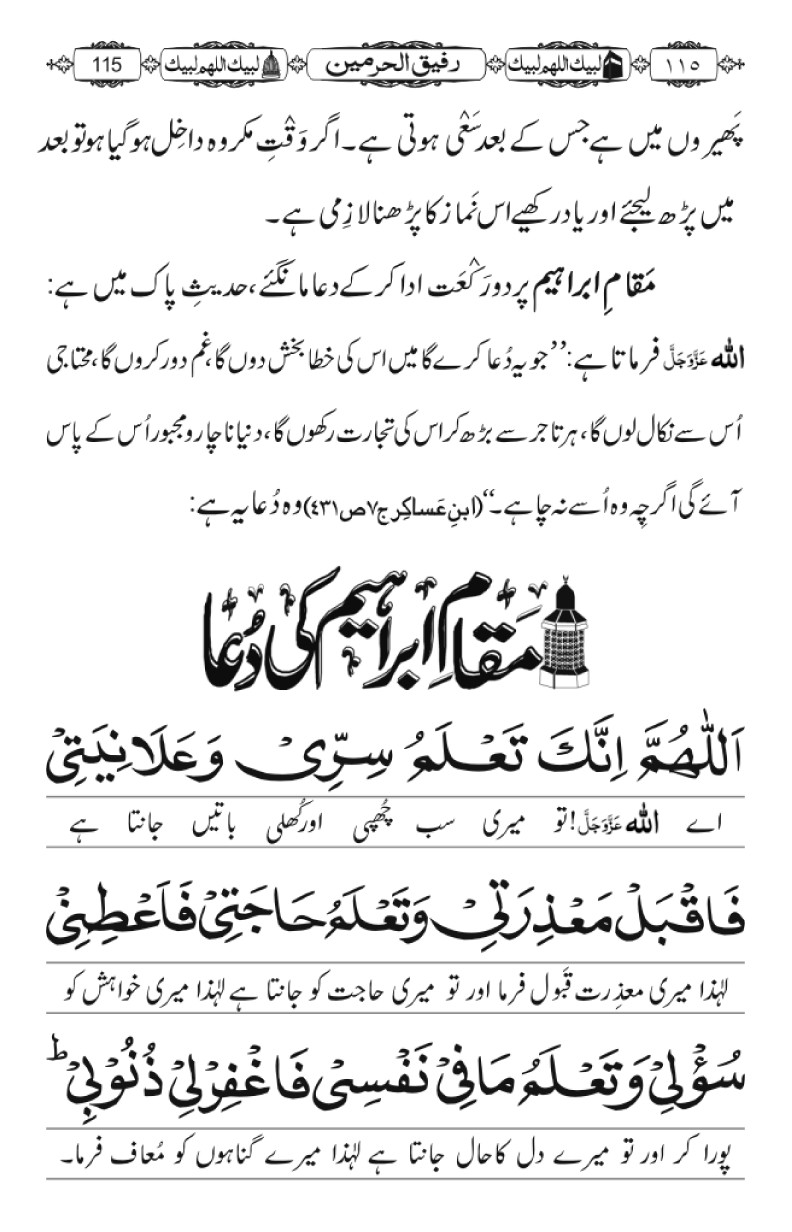 ١١٥ لبيك اللهم لبيك رفيق الحرمين لبيك اللهم لبيك 115
پَھیروں میں ہے جس کے بعد سَعْی ہوتی ہے۔ اگر وَقْتِ مکروہ داخِل ہوگیا ہو تو بعد
میں پڑھ لیجئے اور یاد رکھیے اس نَماز کا پڑھنا لازِمی ہے۔
مَقامِ ابراہیم پر دو رَکْعَت ادا کر کے دعا مانگئے، حدیثِ پاک میں ہے:
اللہ عَزَّوَجَلَّ فرماتا ہے: ’’جو یہ دُعا کرے گا میں اس کی خطا بخش دوں گا، غم دور کروں گا، محتاجی
اُس سے نکال لوں گا، ہر تاجر سے بڑھ کر اس کی تجارت رکھوں گا، دنیا ناچار و مجبور اُس کے پاس
آئے گی اگرچِہ وہ اُسے نہ چاہے۔‘‘ (ابنِ عَساکِر ج۷ ص۴۳۱) وہ دُعا یہ ہے:
مَقامِ ابراہیم کی دُعا
اَللّٰهُمَّ اِنَّكَ تَعْلَمُ سِرِّیْ وَعَلَانِیَتِیْ
اے اللہ عَزَّوَجَلَّ! تو میری سب چُھپی اور کُھلی باتیں جانتا ہے
فَاقْبَلْ مَعْذِرَتِیْ وَتَعْلَمُ حَاجَتِیْ فَاَعْطِنِیْ
لہٰذا میری معذِرت قَبول فرما اور تو میری حاجت کو جانتا ہے لہٰذا میری خواہش کو
سُؤْلِیْ وَتَعْلَمُ مَافِیْ نَفْسِیْ فَاغْفِرْلِیْ ذُنُوْبِیْ ؕ
پورا کر اور تو میرے دل کا حال جانتا ہے لہٰذا میرے گناہوں کو مُعاف فرما۔